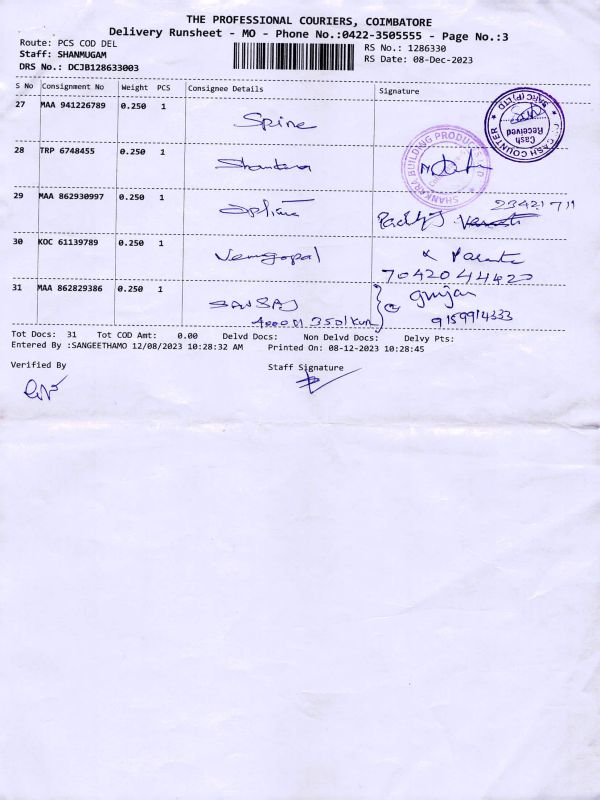 THE PROFESSIONAL COURIERS, COIMBATORE
Delivery Runsheet - MO - Phone No.:0422-3505555 - Page No.:3
Route: PCS COD DEL
RS No.: 1286330
Staff: SHANMUGAM
RS Date: 08-Dec-2023
DRS No.: DCJB128633003
S No Consignment No Weight PCS Consignee Details Signature
27 MAA 941226789 0.250 1 Spine
CASH COUNTER
Cash Received
28 TRP 6748455 0.250 1 Shankara
SHANKARA BUILDING PRODUCTS LTD
29 MAA 862930997 0.250 1
23421711
30 KOC 61139789 0.250 1 Venugopal
7042044420
31 MAA 862829386 0.250 1 SANSAJ
gunjan
9159914333
Tot Docs: 31 Tot COD Amt: 0.00 Delvd Docs: Non Delvd Docs: Delvy Pts:
Entered By :SANGEETHAMO 12/08/2023 10:28:32 AM Printed On: 08-12-2023 10:28:45
Verified By
Staff Signature